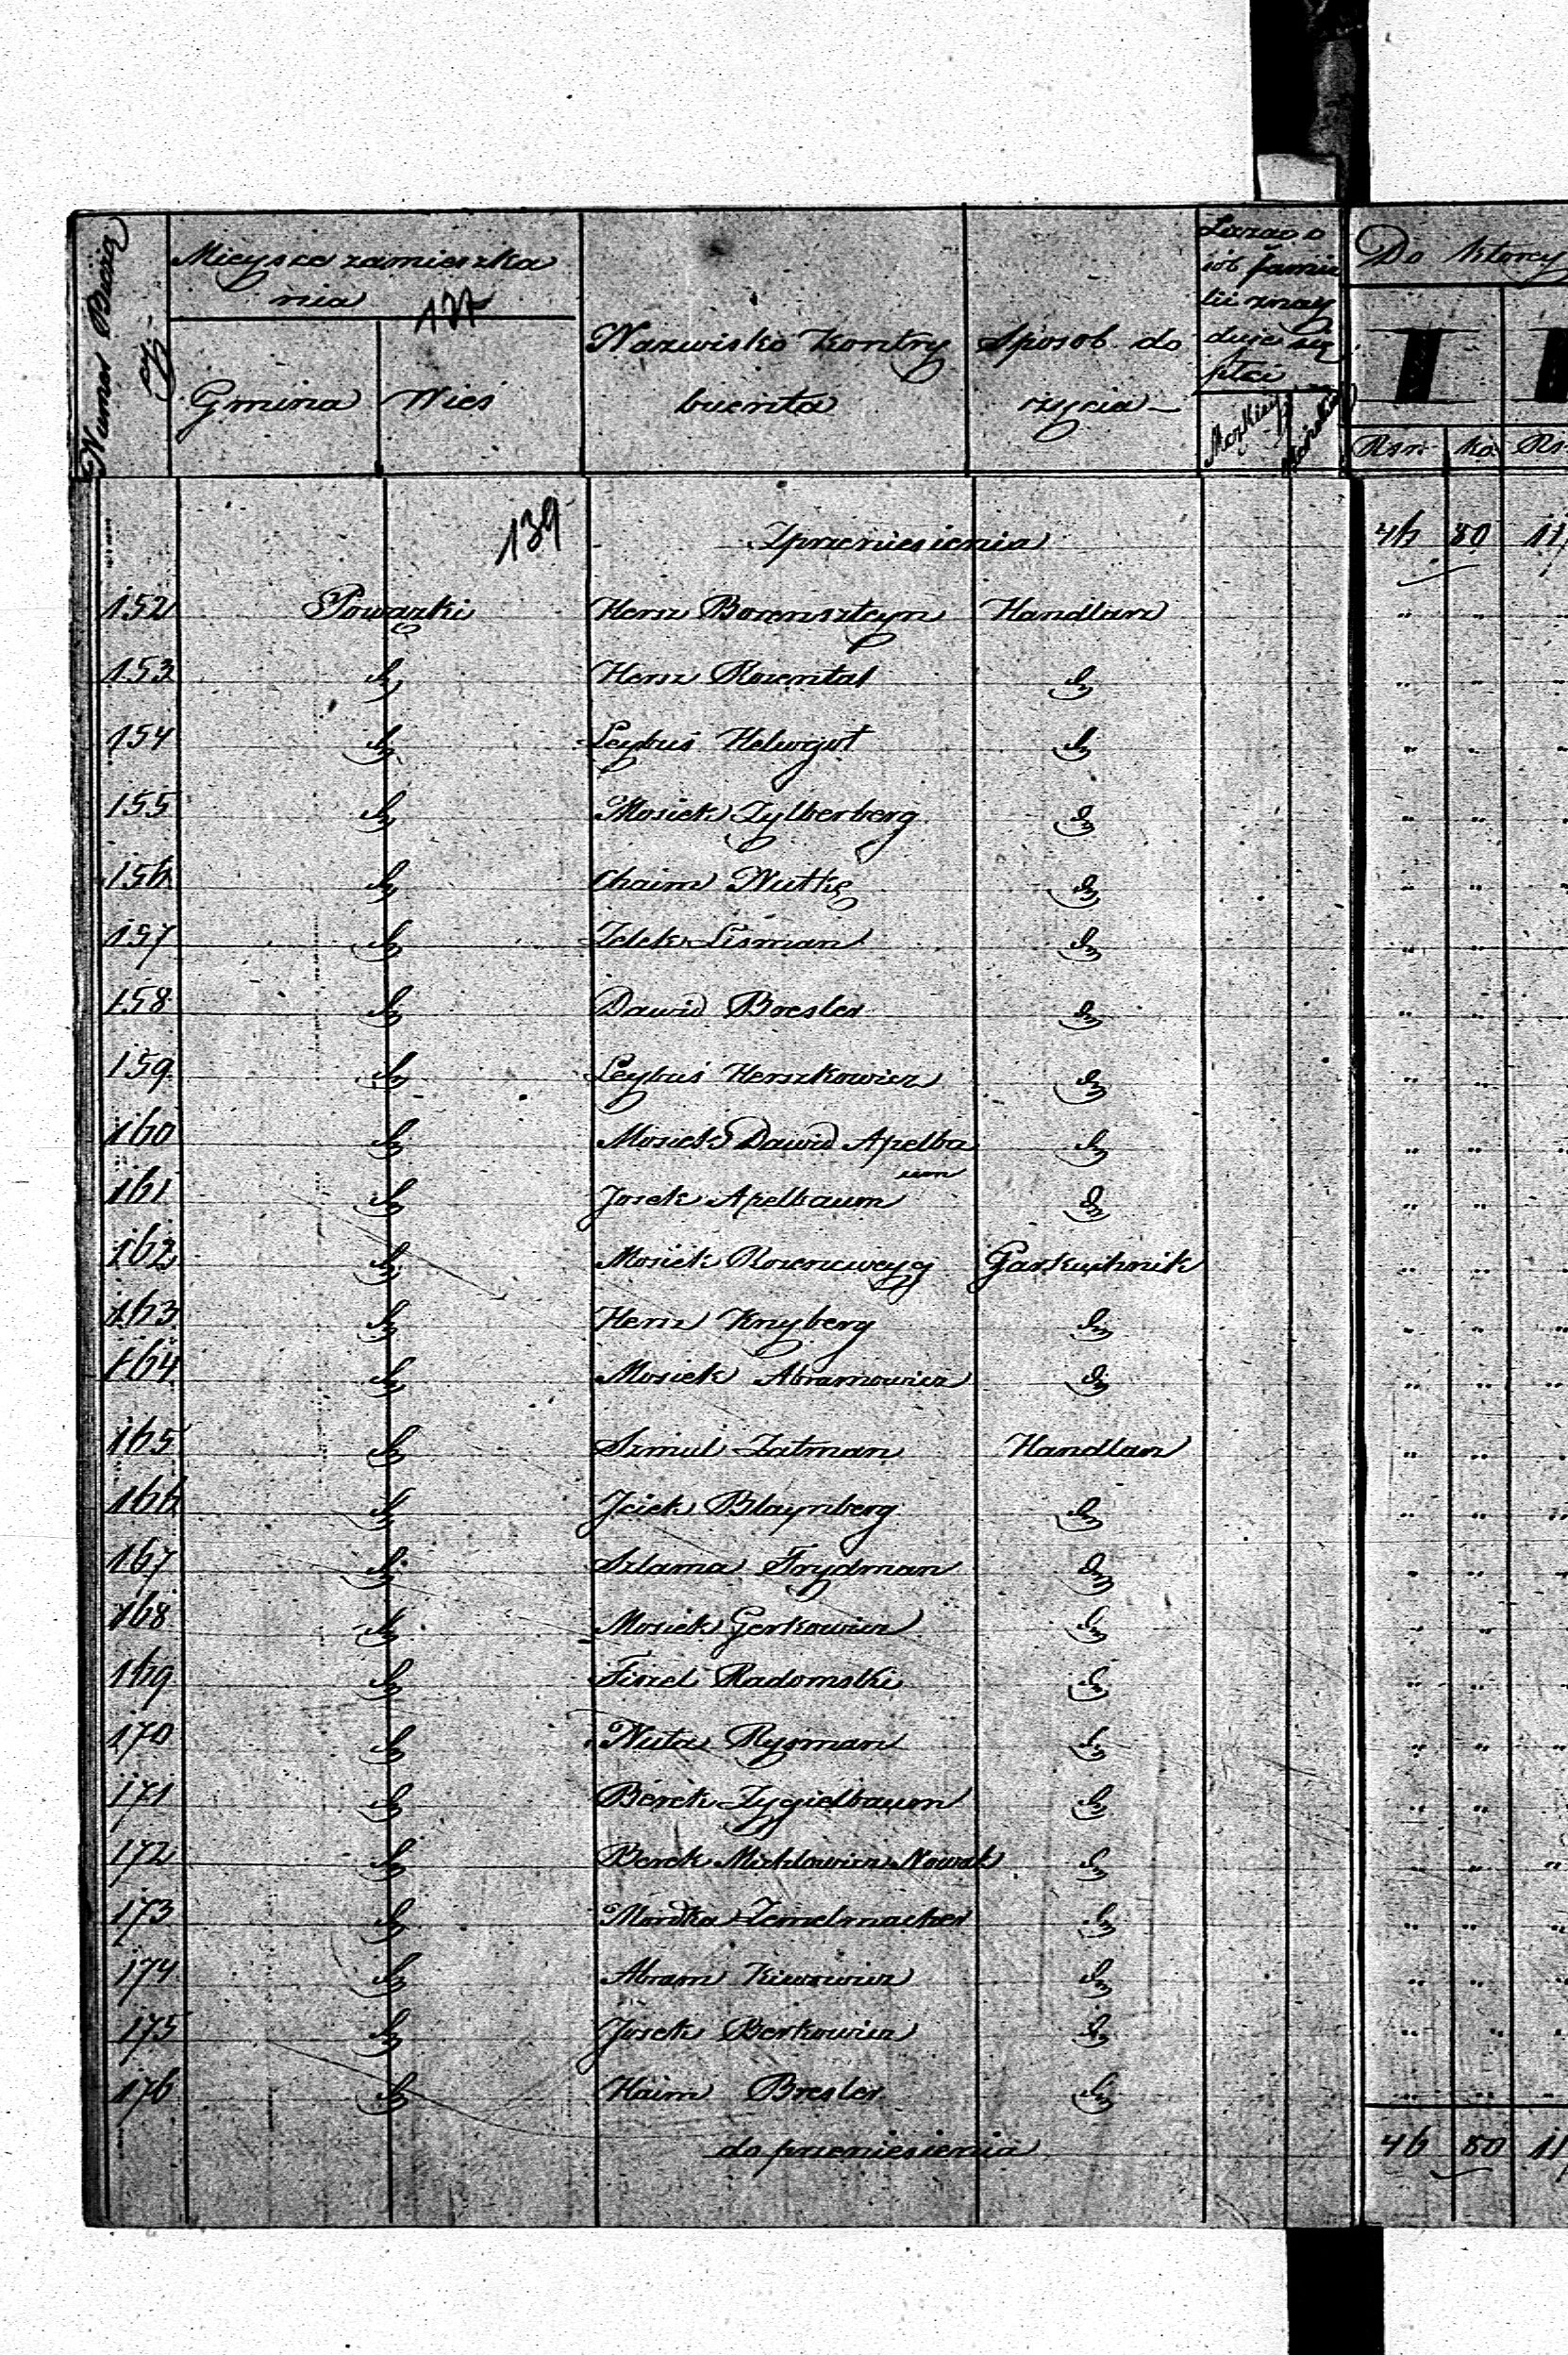 Numer Bieżący
Mieysce zamieszka
nia
137
Gmina Wieś
Nazwisko Kontry
buenta
Sposob do
życia
Liczba o
sób famie
lii znay
duie się
płci
Męzkiey Żeńskiey
Do ktorey
I
Rsr. ko Rs
139
Zprzeniesienia 46 80 11
152 Powązki Hersz Borenszteyn Handlarz " "
153 do Hersz Rozental do " "
154 do Leybuś Helwgot do " "
155 do Mosiek Zylberberg do " "
156 do Chaim Nutkę do " "
157 do Zelek Lisman do " "
158 do Dawid Bresler do " "
159 do Leybuś Herszkowicz do " "
160 do Mosiek Dawid Apelba do " "
um
161 do Josek Apelbaum do " "
162 do Mosiek Rozencweyg Garkuchnik " "
163 do Hersz Knyberg do " "
164 do Mosiek Abramowicz do " "
165 do Szmul Zatman Handlarz " "
166 do Jcick Blaynberg do " "
167 do Szlama Frydman do " "
168 do Mosiek Gerkowicz do " "
169 do Fiszel Radomski do " "
170 do Nuta Rysman do " "
171 do Berek Zygielbaum do " "
172 do Berek Michlowicz Nowak do " "
173 do Mordka Zemelmacher do " "
174 do Abram Kiwowicz do " "
175 do Josek Berkowicz do " "
176 do Haim Bresler do " "
do przeniesienia 46 80 11